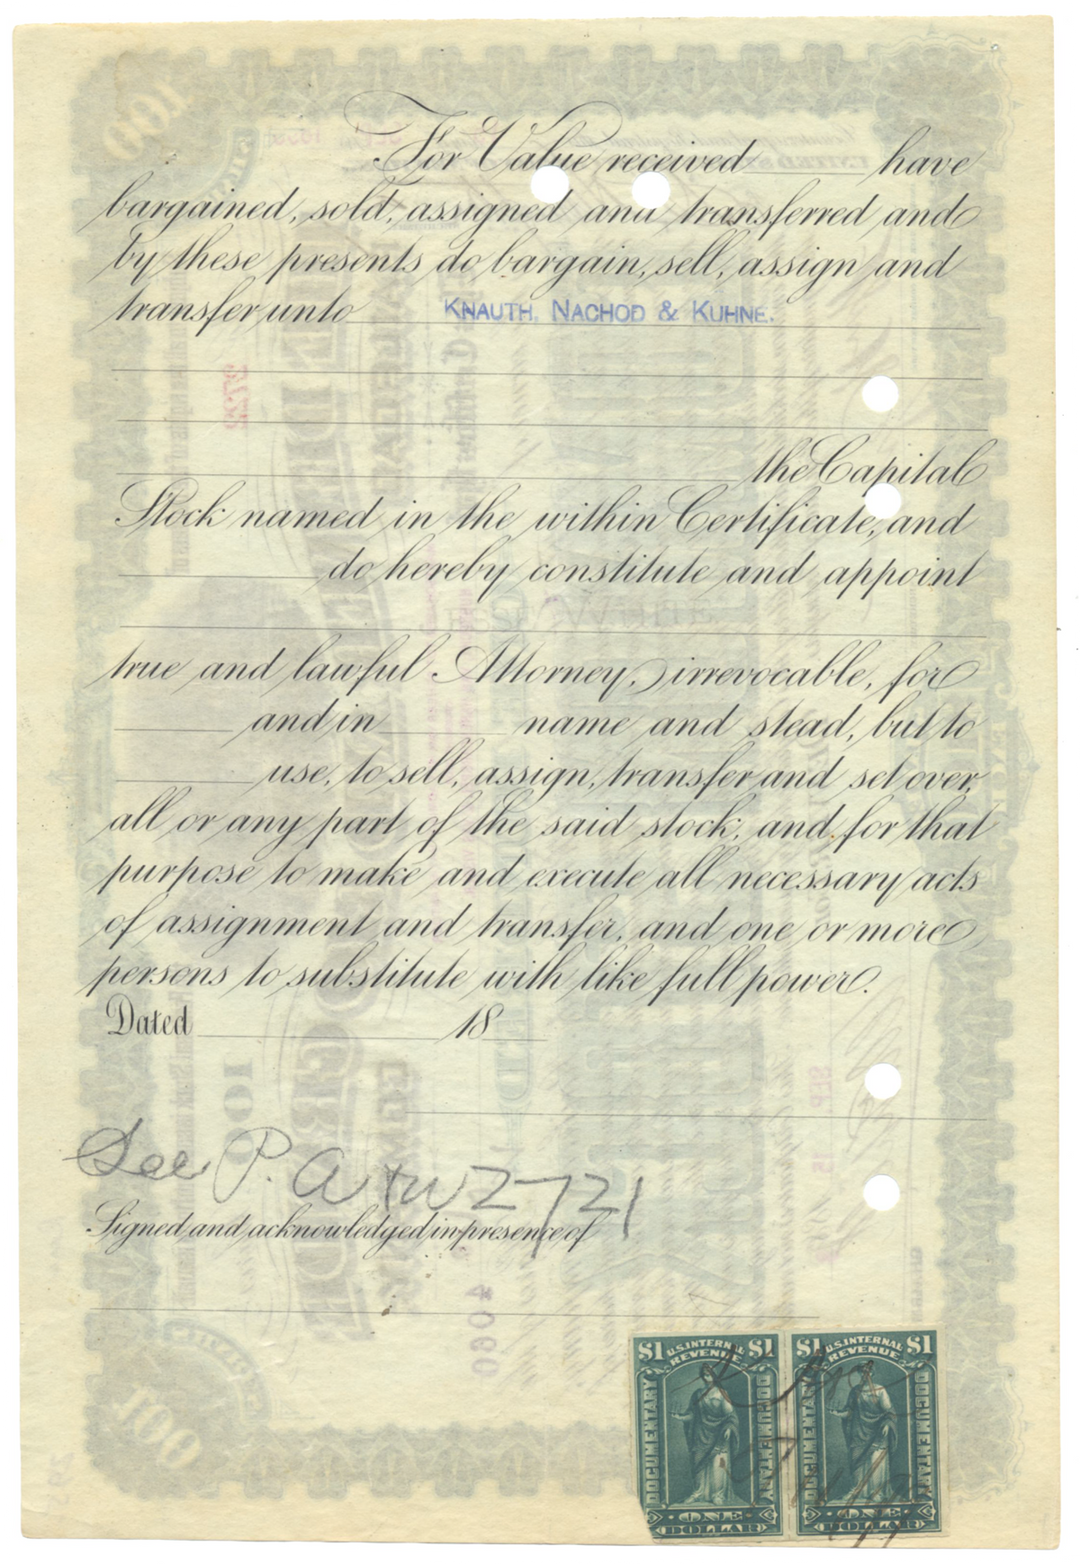 For Value received have
bargained, sold, assigned and transferred and
by these presents do bargain, sell, assign and
transfer unto KNAUTH, NACHOD & KUHNE.
the Capital
Stock named in the within Certificate, and
do hereby constitute and appoint
true and lawful Attorney, irrevocable, for
and in name and stead, but to
use, to sell, assign, transfer and set over,
all or any part of the said stock; and for that
purpose to make and execute all necessary acts
of assignment and transfer, and one or more
persons to substitute with like full power.
Dated 18
See P. A
Signed and acknowledged in presence of
$1 U.S. INTERNAL REVENUE $1
DOCUMENTARY DOCUMENTARY
ONE DOLLAR
$1 U.S. INTERNAL REVENUE $1
DOCUMENTARY DOCUMENTARY
ONE DOLLAR